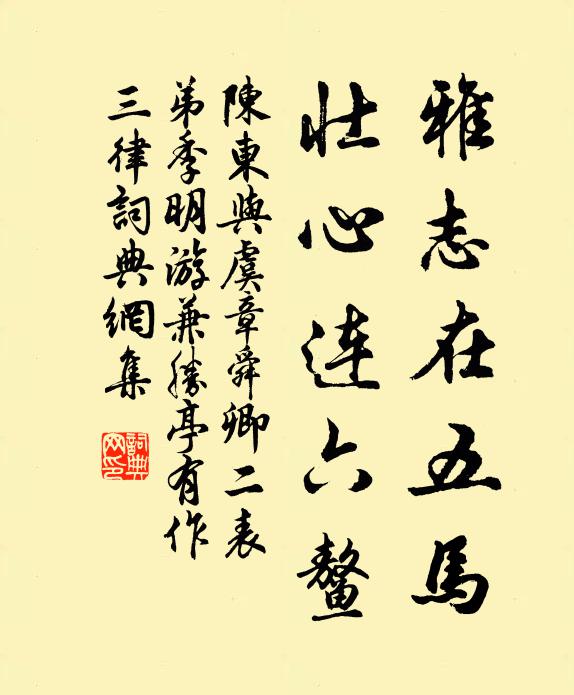 雅志在五馬
壯心連六鰲
陳東與虞章舜卿二表
弟季明游兼勝亭有作
三律詞典網集
詞典網印